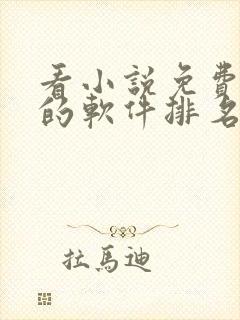 看小說免費
的軟件排名
拉馬迪